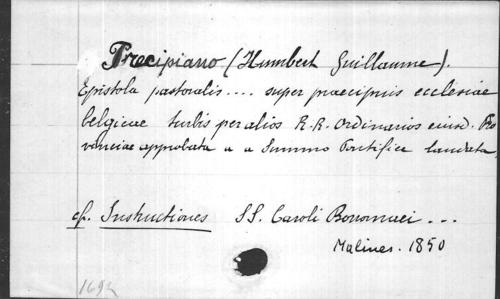 Precipiano (Humbert Guillaume).
Epistola pastoralis.... super praecipuis ecclesiae
belgicae turbis per alios R.R. Ordinarios eiusd. Pro
vinciae approbata a a Summo Pontifice laudata
cf. Instructiones SS. Caroli Borromaei ...
Malines. 1850
169